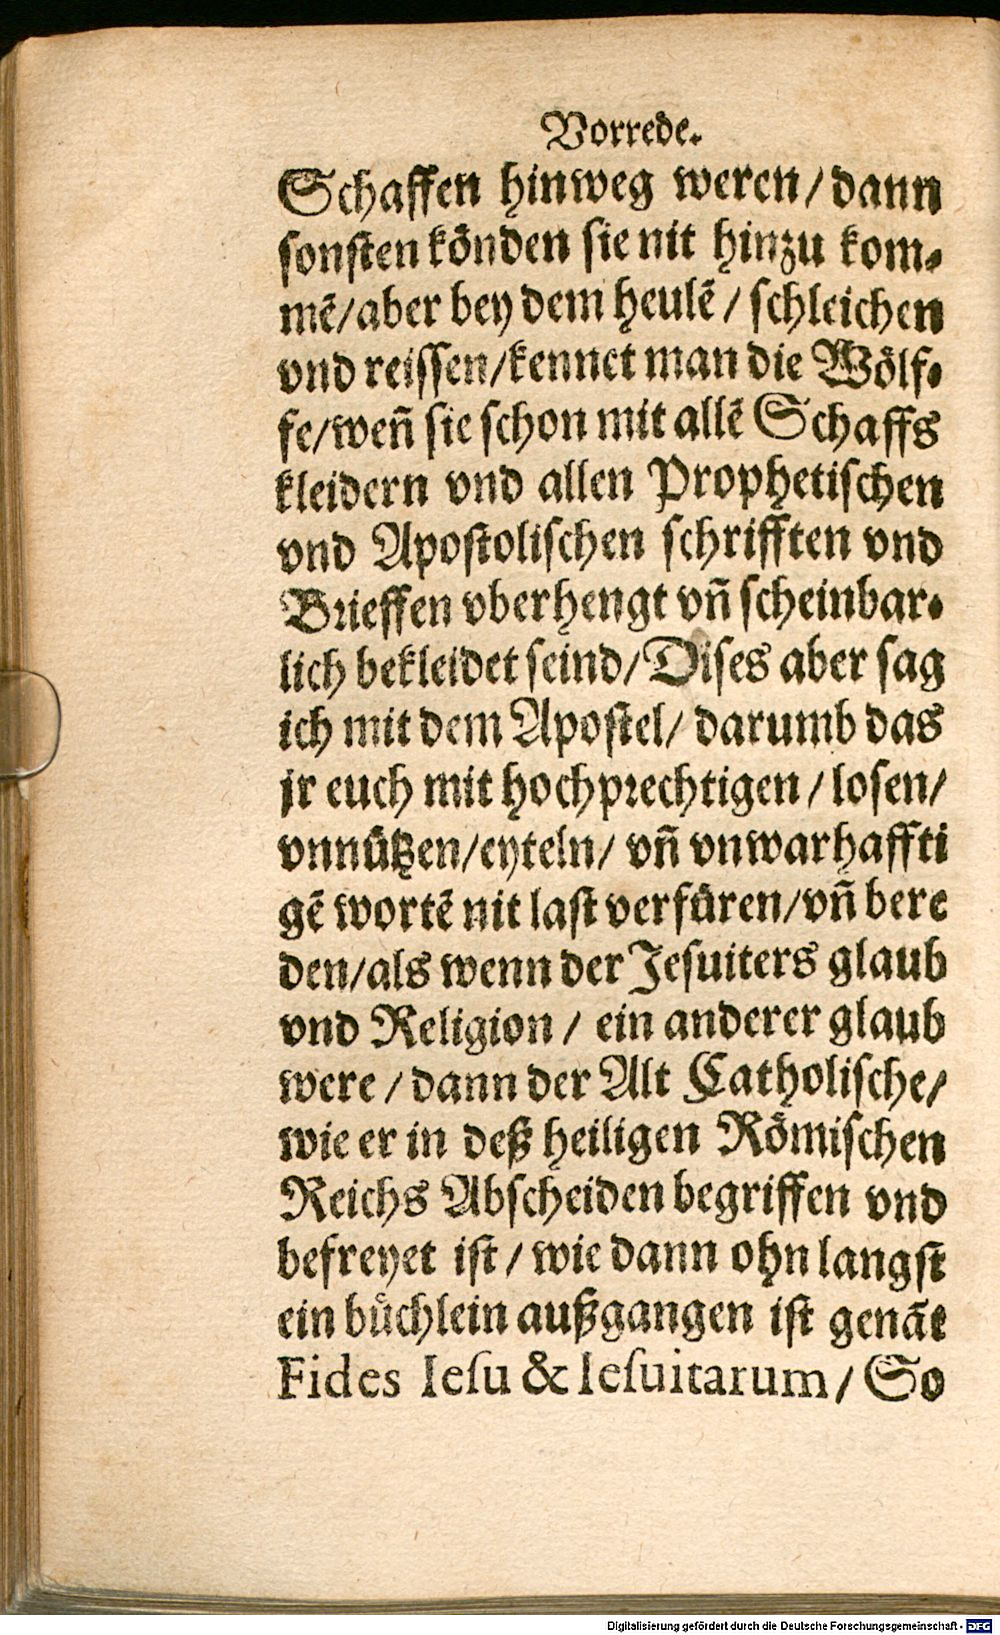 Vorrede.
Schaffen hinweg weren/dann
sonsten könden sie nit hinzu kom⸗
mẽ/aber bey dem heulẽ/ schleichen
vnd reissen/kennet man die Wölf⸗
fe/weñ sie schon mit allẽ Schaffs
kleidern vnd allen Prophetischen
vnd Apostolischen schrifften vnd
Brieffen vberhengt vñ scheinbar⸗
lich bekleidet seind/Dises aber sag
ich mit dem Apostel/ darumb das
jr euch mit hochprechtigen/ losen/
vnnützen/eyteln/ vñ vnwarhaffti
gẽ wortẽ nit last verfüren/vñ bere
den/als wenn der Jesuiters glaub
vnd Religion/ ein anderer glaub
were/dann der Alt Catholische/
wie er in deß heiligen Römischen
Reichs Abscheiden begriffen vnd
befreyet ist/wie dann ohn langst
ein büchlein außgangen ist genãt
Fides Iesu & Iesuitarum/ So
Digitalisierung gefördert durch die Deutsche Forschungsgemeinschaft - DFG